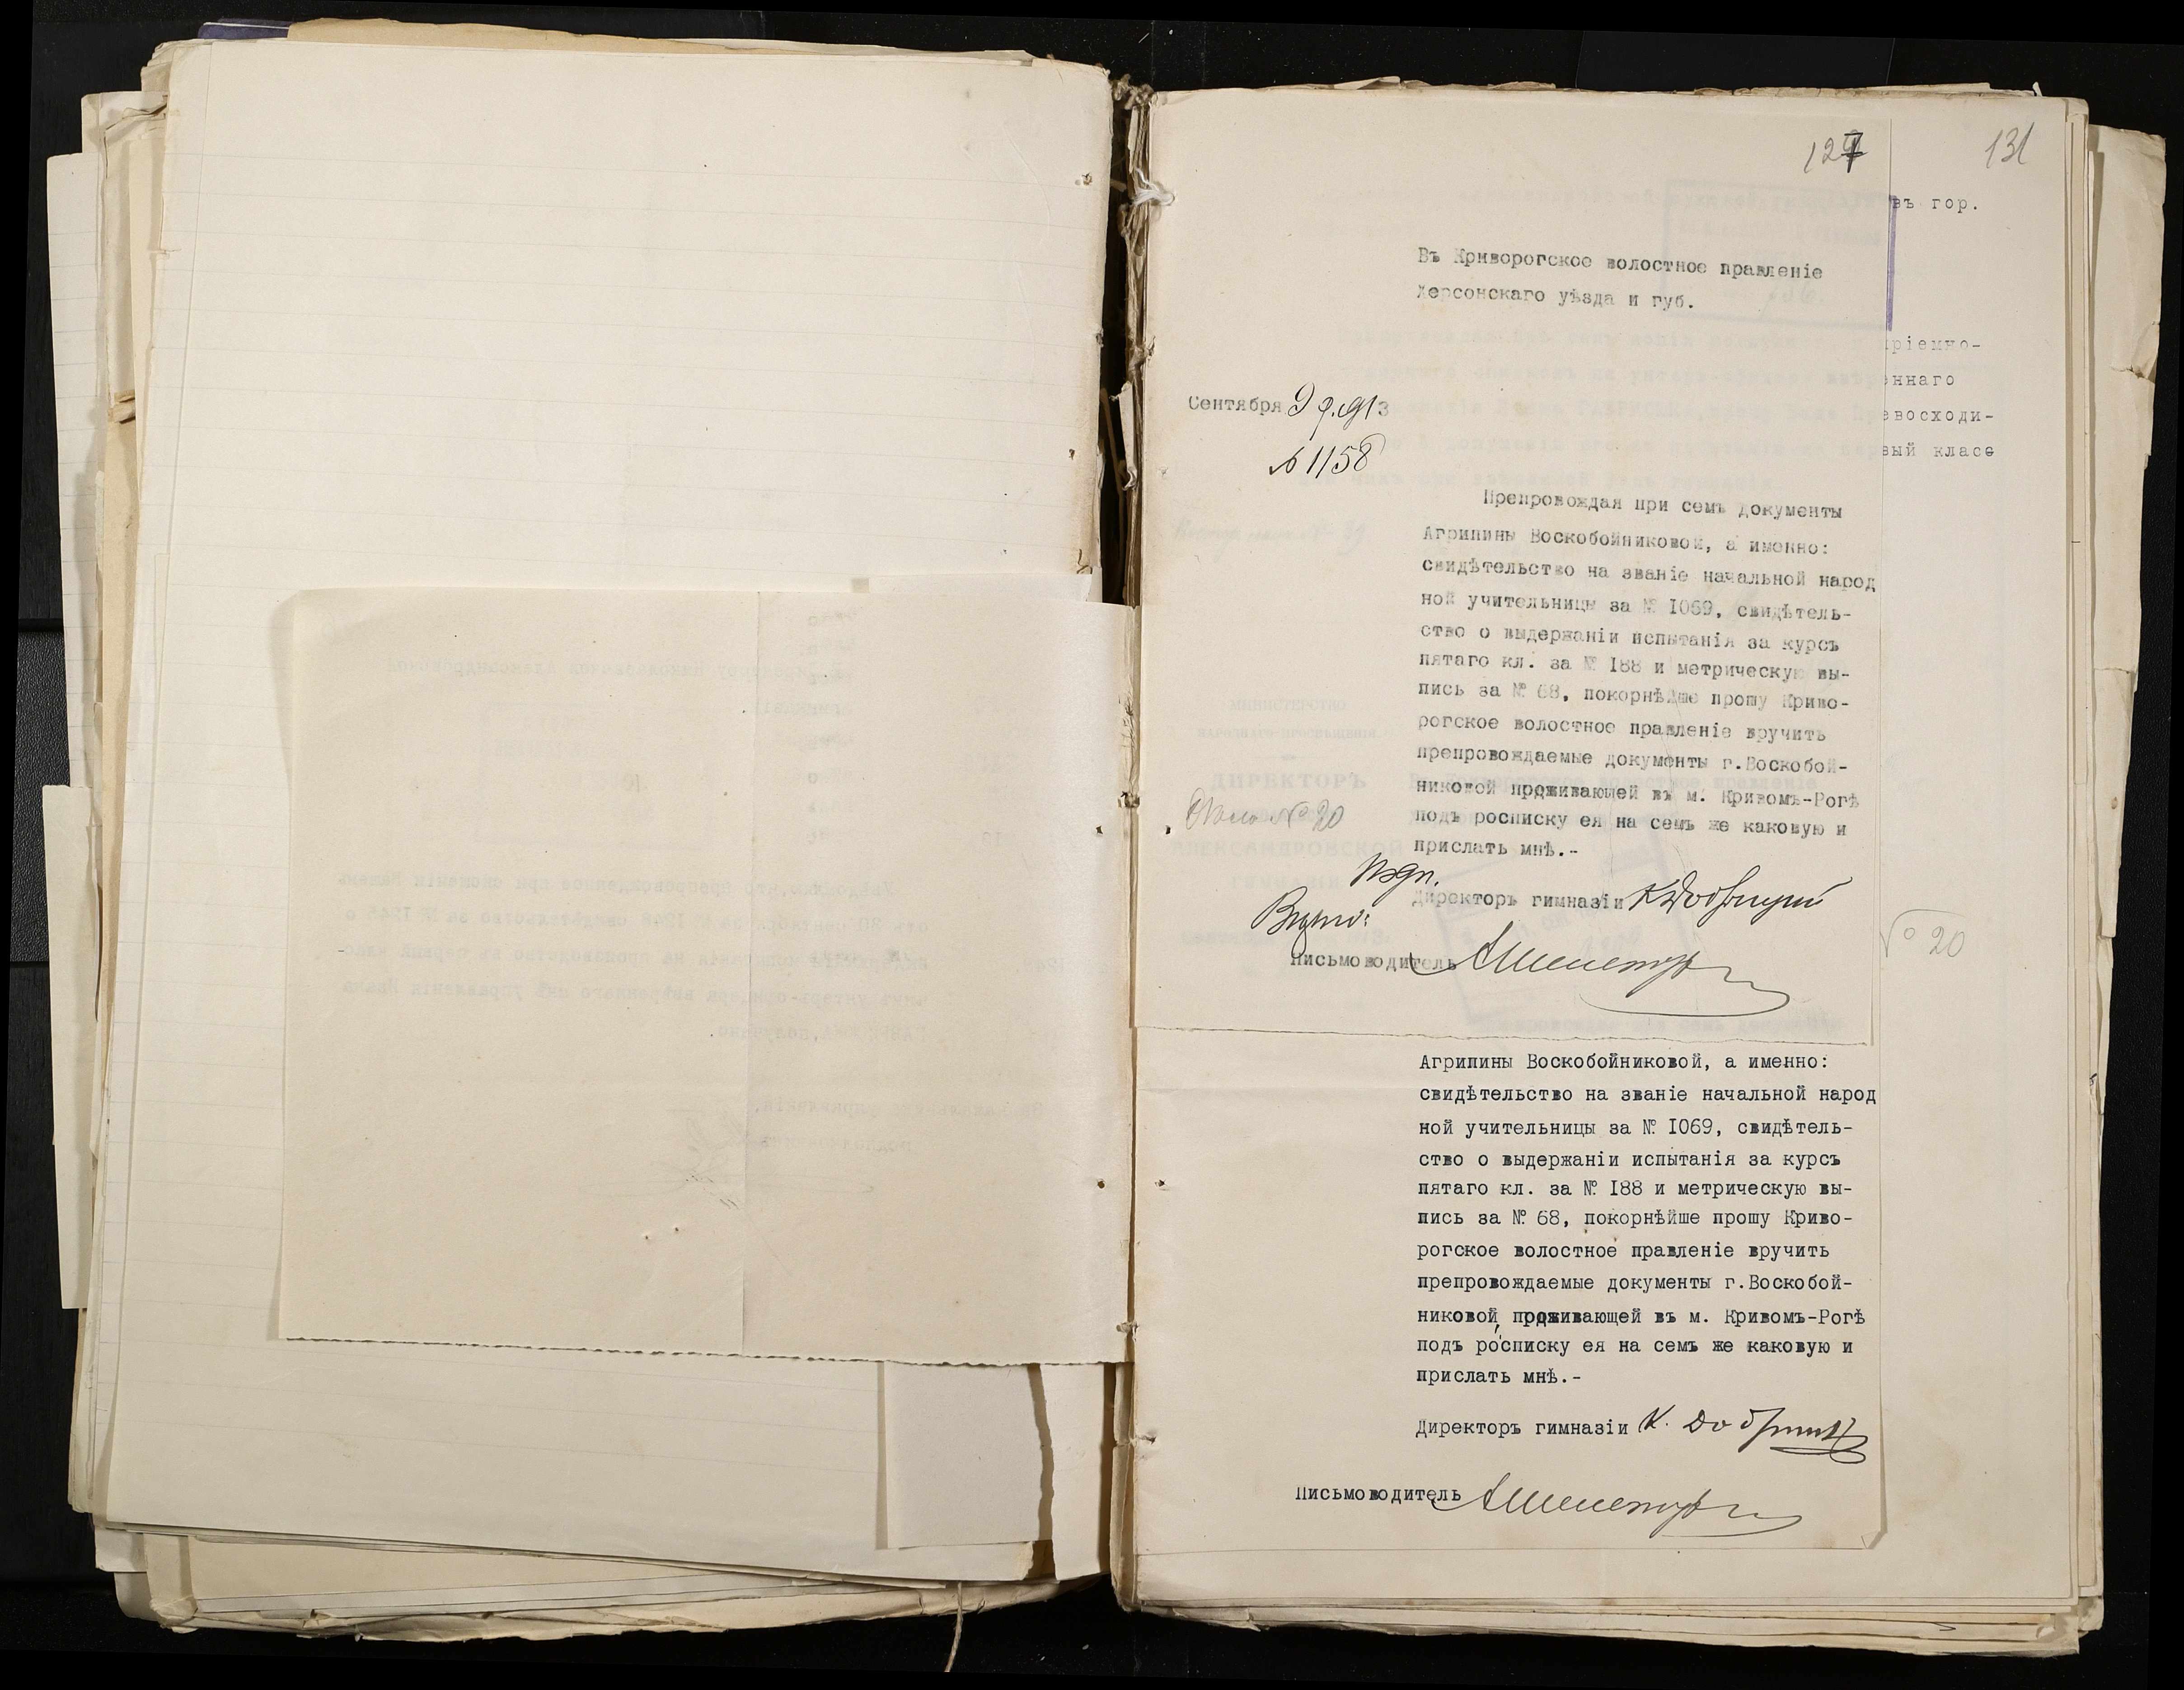 129
131
въ гор.
Въ Криворогское волостное правленіе
Херсонскаго уѣзда и губ.
ріемно-
ннаго
Сентября 9 д. 1913
восходи-
№ 1158
вый класс
Препровождая при семъ документы
Агрипины Воскобойниковой, а именно:
свидѣтельство на званіе начальной народ
ной учительницы за № I069, свидѣтель-
ство о выдержаніи испытанія за курсъ
пятаго кл. за № I88 и метрическую вы-
пись за № 68, покорнѣйше прошу Криво-
рогское волостное правленіе вручить
препровождаемые документы г.Воскобой-
никовой проживающей въ м. Кривомъ-Рогѣ
подъ росписку ея на семъ же каковую и
прислать мнѣ.-
Дѣло № 20
Директоръ гимназіи
Письмоводитель
№ 20
Агрипины Воскобойниковой, а именно:
свидѣтельство на званіе начальной народ
ной учительницы за № I069, свидѣтель-
ство о выдержаніи испытанія за курсъ
пятаго кл. за № I88 и метрическую вы-
пись за № 68, покорнѣйше прошу Криво-
рогское волостное правленіе вручить
препровождаемые документы г.Воскобой-
никовой, проживающей въ м. Кривомъ-Рогѣ
подъ росписку ея на семъ же каковую и
прислать мнѣ.-
Директоръ гимназіи К.
Письмоводитель